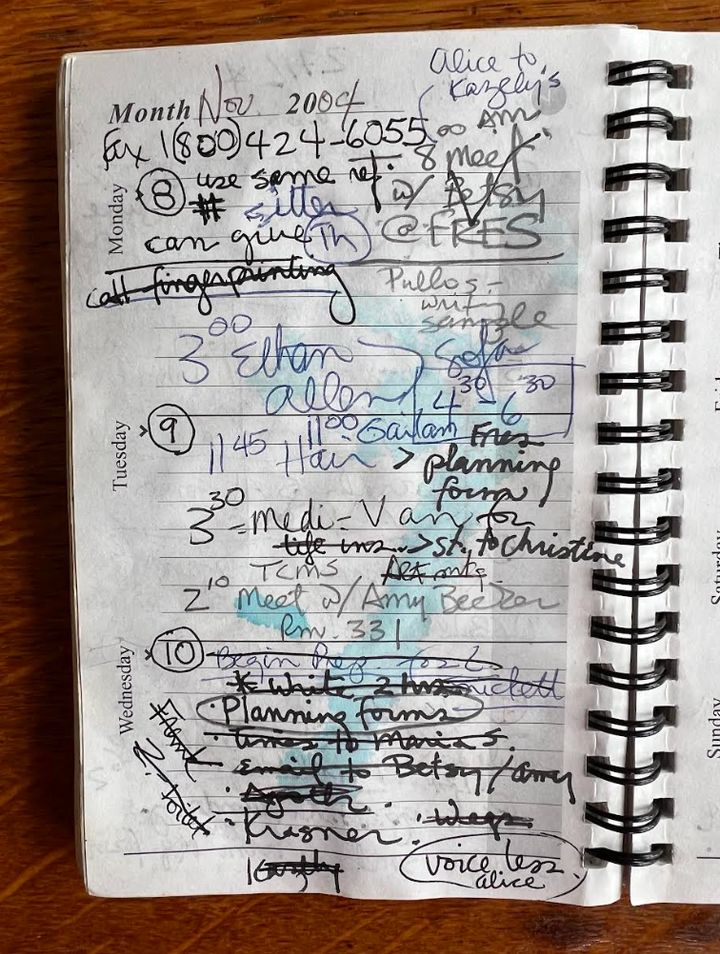 Alice to
Month Nov. 2004
Fax 1(800)424-6055
8 00 AM
Meet
w/ Betsy
@ FRES
Monday
8 use same ref.
# sitter
can give Th
call fingerprinting
Pullos -
writ
sample
3 00 Ethan
Allen
Sofa
4 30 - 6 30
Tuesday
9
11 00
11 45 Hair > planning
forms
3 30 = Medi-Van for
life ins. > st. to Christine
TCMS
2 10 Meet w/ Amy Becker
Rm. 331
Wednesday
10 Begin Prep. for
* write 2 hrs
· Planning forms
· times to Maria S.
· email to Betsy/Amy
· Krasner
voice less.
alice
Saturday
Sunday